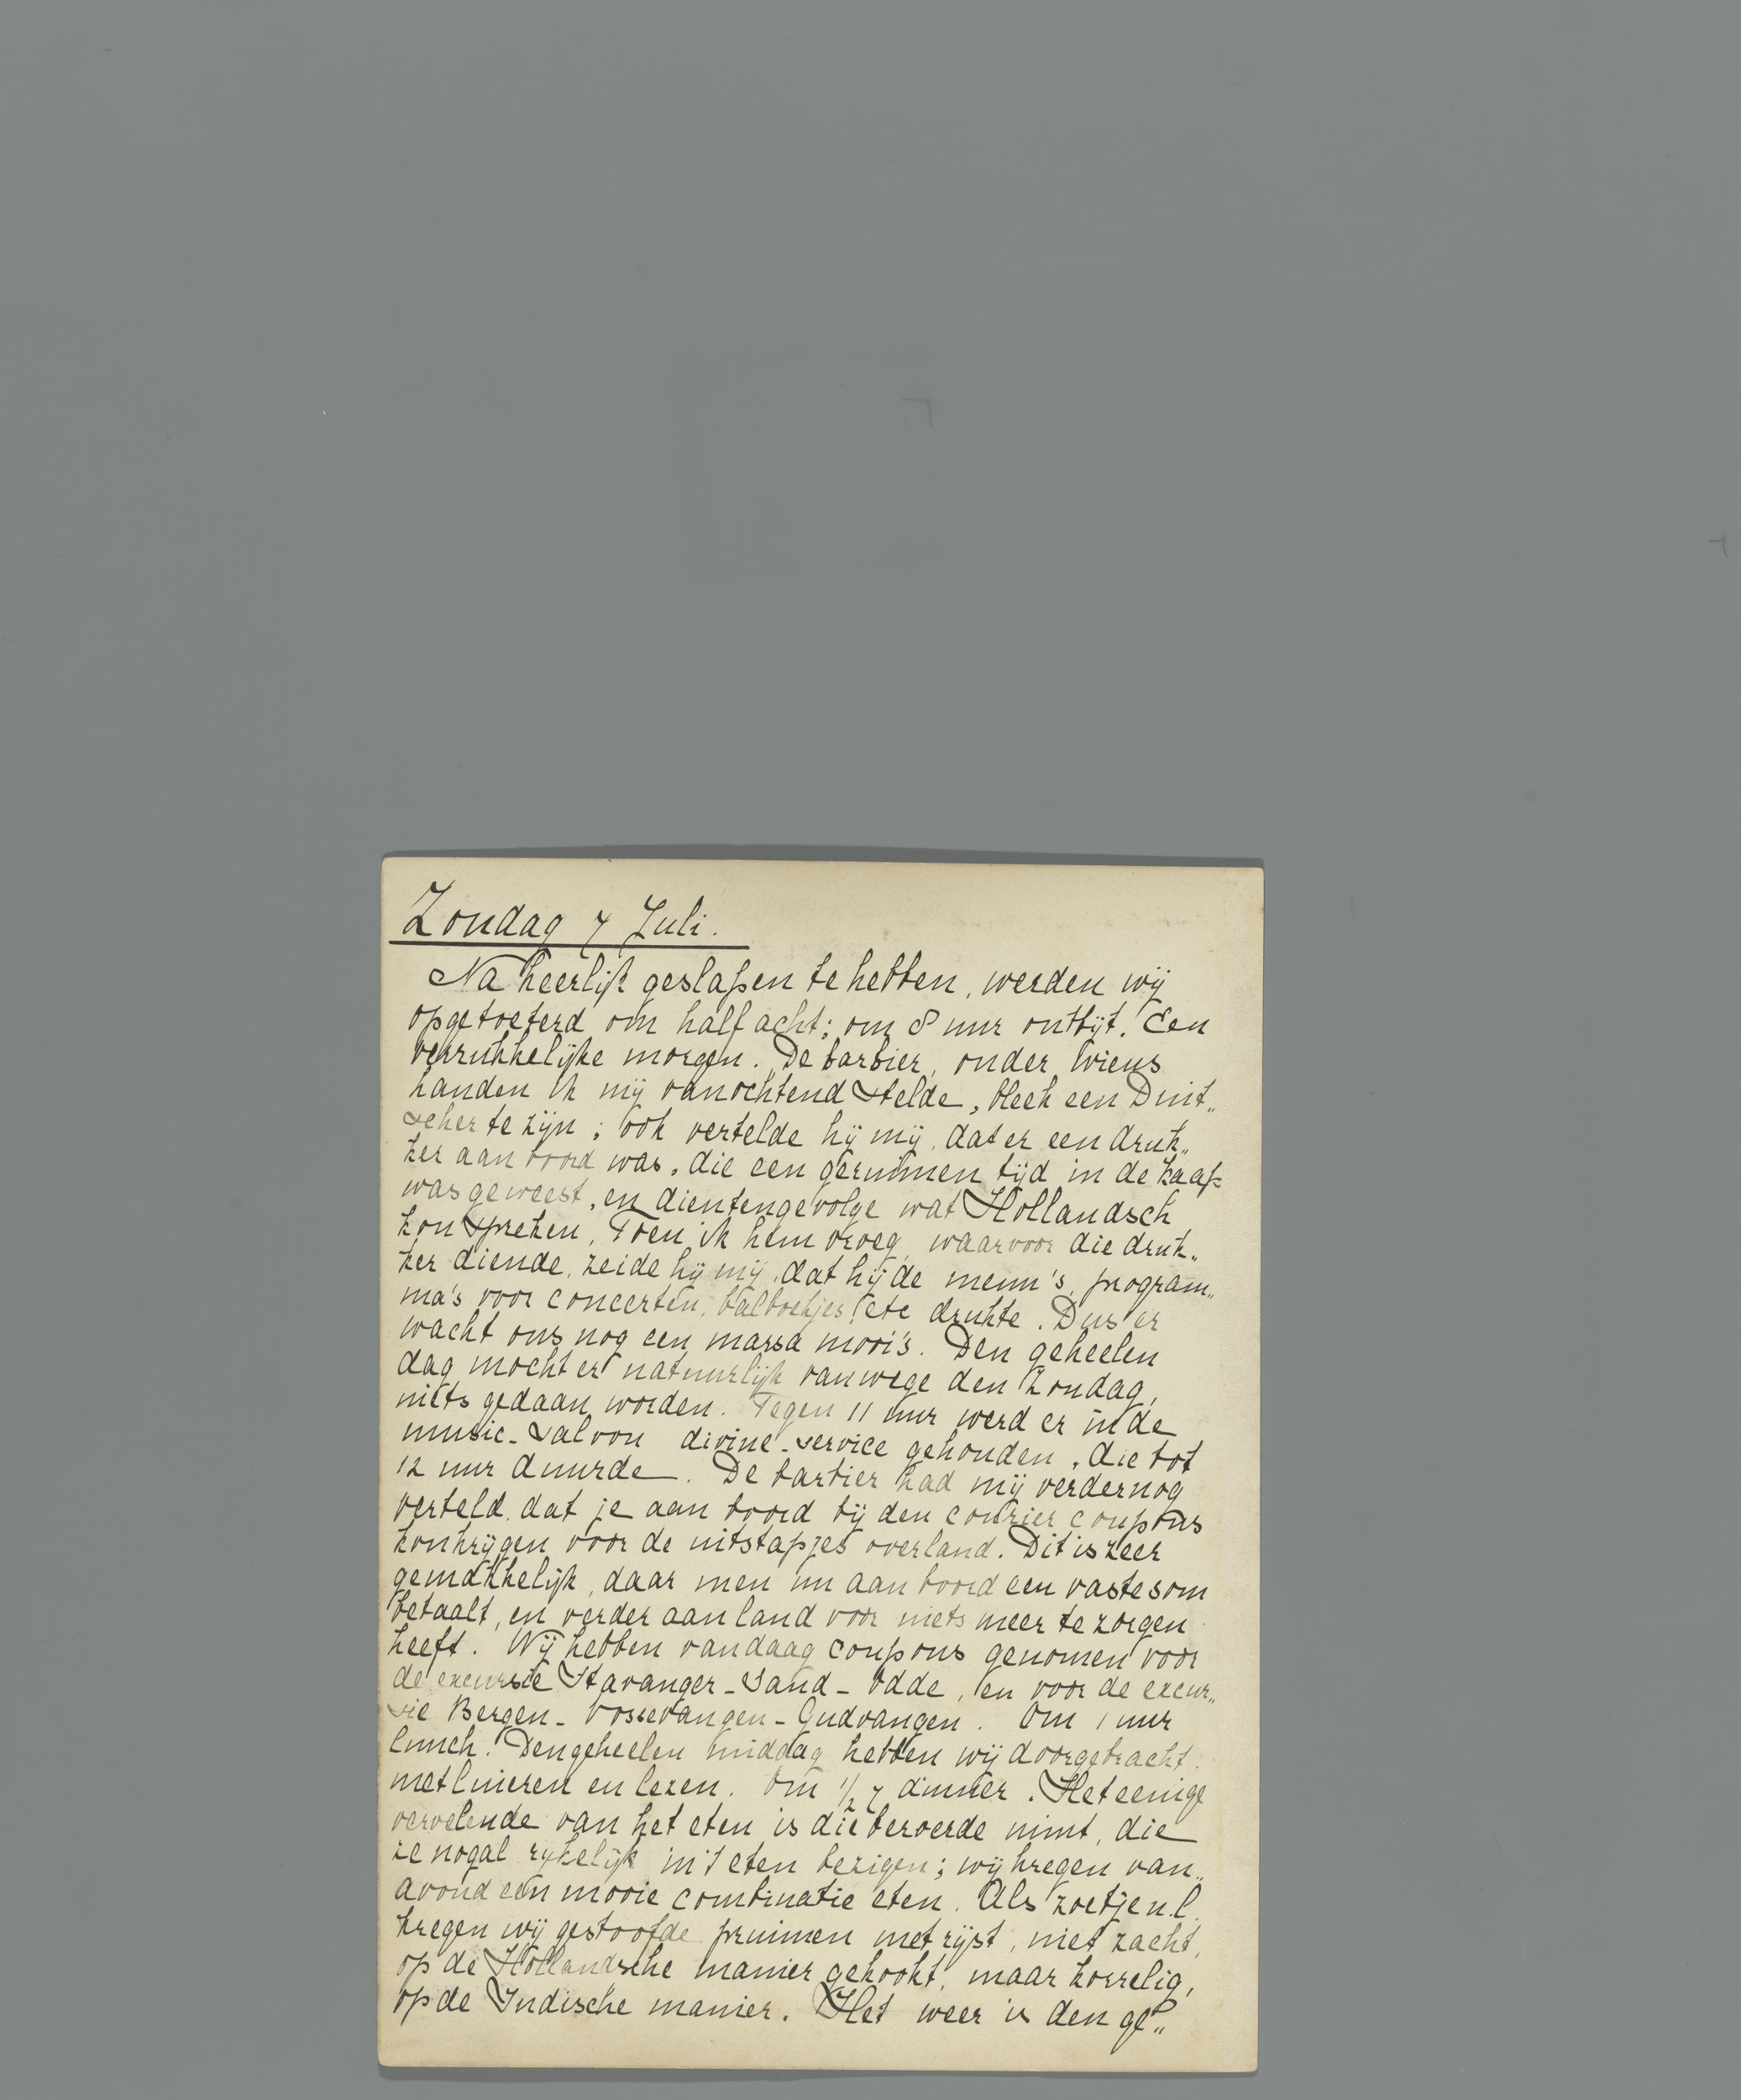 Zondag 7 Juli.
Na heerlijk geslapen te hebben, werden wij
opgetoeterd om half acht; om 8 uur ontbijt. Een
verrukkelijke morgen. De barbier, onder wiens
handen ik mij vanochtend stelde, bleek een Duit„
scher te zijn; ook vertelde hij mij, dat er een druk„
ker aan boord was, die een geruimen tijd in de Kaap
was geweest, en dientengevolge wat Hollandsch
kon spreken. Toen ik hem vroeg, waarvoor die druk„
ker diende, zeide hij mij, dat hij de menu's, program„
ma's voor concerten, balboekjes etc drukte. Dus er
wacht ons nog een massa moois. Den geheelen
dag mocht er natuurlijk vanwege den Zondag,
niets gedaan worden. Tegen 11 uur werd er in de
music-saloon divine-service gehouden, die tot
12 uur duurde. De barbier had mij verder nog
verteld, dat je aan boord bij den courier coupons
kon krijgen voor de uitstapjes overland. Dit is zeer
gemakkelijk, daar men nu aan boord een vaste som
betaalt, en verder aan land voor niets meer te zorgen
heeft. Wij hebben vandaag coupons genomen voor
de excursie Stavanger-Sand-Odde, en voor de excur„
sie Bergen-Vossevangen-Gudvangen. Om 1 uur
lunch. Den geheelen middag hebben wij doorgebracht
met luieren en lezen. Om 1/2 7 dinner. Het eenige
vervelende van het eten is die beroerde mint, die
ze nogal rijkelijk in 't eten bezigen; wij kregen van„
avond een mooie combinatie eten. Als zoetje n.l.
kregen wij gestoofde pruimen met rijst, niet zacht,
op de Hollandsche manier gekookt, maar korrelig,
op de Indische manier. Het weer is den ge„